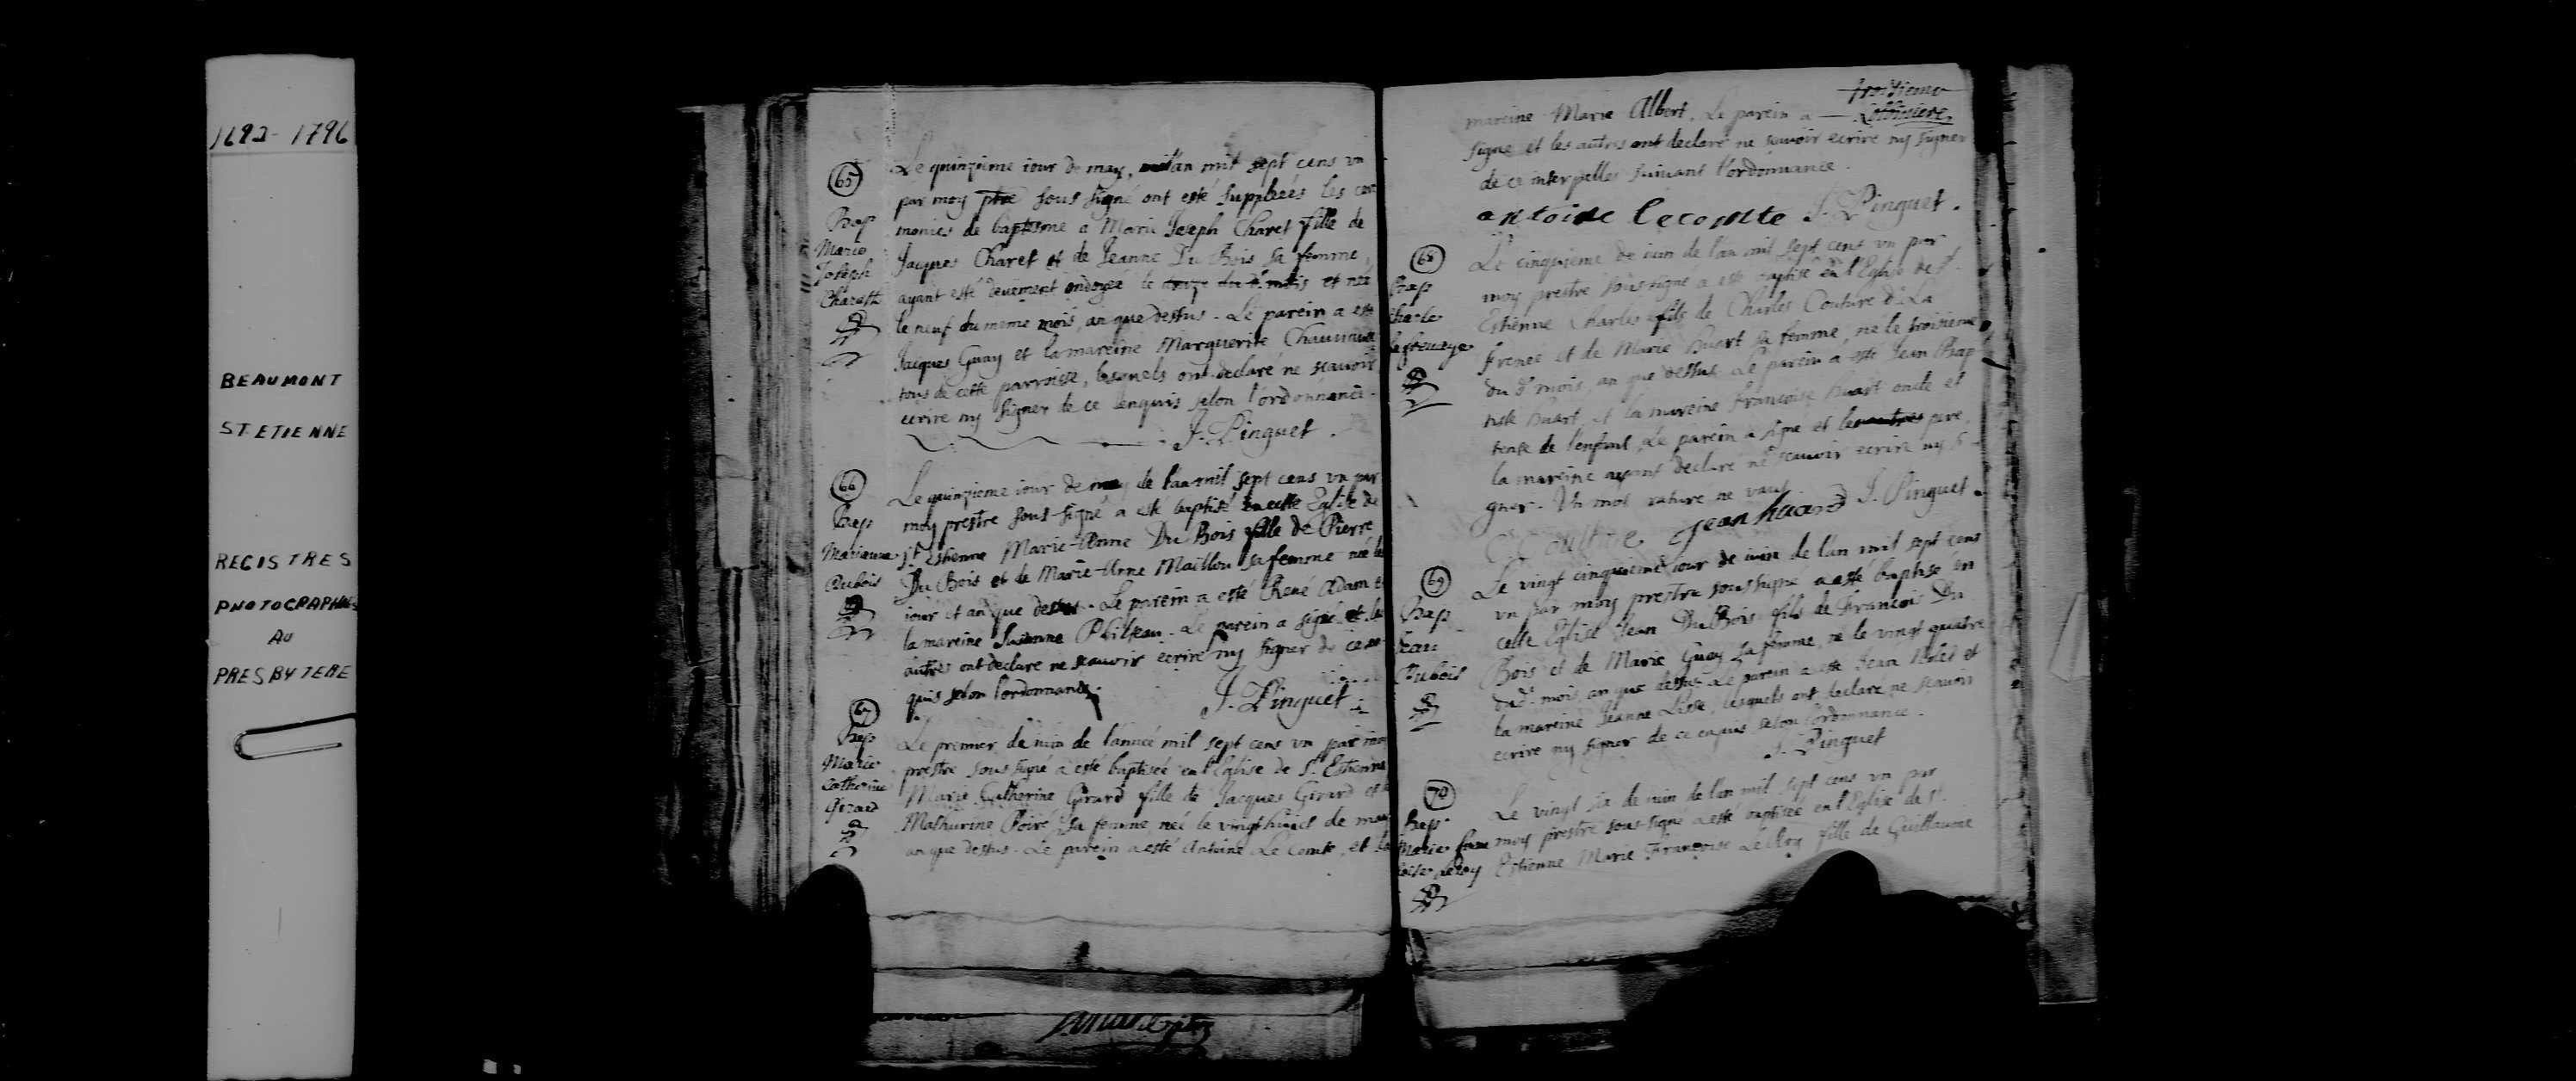 1692-1796
BEAUMONT
ST. ETIENNE
REGISTRES
PHOTOGRAPHIES
AU
PRESBYTERE
65
Bap
Marie
Joseph
Charest
Le quinzieme iour de may, l'an mil sept cens vn
par moy ptre sous signé ont esté suppleées les cere
monies de baptesme a Marie Joseph Charet fille de
Jacques Charet et de Jeanne Du Bois sa femme,
ayant esté deuement ondoyée le du d. mois et née
le neuf du meme mois, an que dessus. Le parein a esté
Jacques Guay et la mareine Marguerite
tous de cette parroisse, lesquels ont declaré ne scauoir
ecrire ny signer de ce enquis selon l'ordonnance.
J. Pinguet.
66
Bap
Marianne
dubois
Le quinzieme iour de may de l'an mil sept cens vn par
moy prestre sous-signé a esté baptisé en cette Eglise de
St. Estienne Marie-Anne Du Bois fille de Pierre
Du Bois et de Marie-Anne Maillou sa femme née le
iour et an que dessus. Le parein a esté René Adam et
la mareine Suzanne Philteau. Le parein a signé et les
autres ont declare ne scauoir ecrire ny signer de ce en
quis selon l'ordonnance.
J. Pinguet.
67
Bap
Marie
Catherine
Girard
Le premier de iuin de l'année mil sept cens vn par moy
prestre sous signé a esté baptisée en l'Eglise de St. Estienne
Marie Catherine Girard fille de Jacques Girard et de
Mathurine Poiré sa femme, née le vingt huict de may
an que dessus. Le parein a esté Antoine Le Comte, et la
troisieme
mareine Marie Albert. Le parein a
signé et les autres ont declaré ne scauoir ecrire ny signer
de ce interpelles suiuant l'ordonnance.
antoine lecomte J. Pinguet.
68
Bap
Charles
lafrenaye
Le cinquieme de iuin de l'an mil sept cens vn par
moy prestre sous signé a esté baptisé en l'Eglise de St.
Estienne Charles fils de Charles Couture dt. La
frenee et de Marie Huart sa femme, né le troisieme
du d. mois, an que dessus. Le parein a esté Jean Bap
tiste Huart, et la mareine francoise Huart oncle et
tente de l'enfant, Le parein a signé et les autres pere,
la mareine ayant declaré ne scauoir ecrire ny si
gner. Un mot raturé ne vaut.
C Couture jean huard J. Pinguet.
69
Bap
Jean
Dubois
Le vingt cinquieme iour de iuin de l'an mil sept cens
vn par moy prestre soussigné a esté baptisé en
cette Eglise Jean Du Bois fils de Francois Du
Bois et de Marie Guay sa femme, né le vingt quatre
du d. mois, an que dessus. Le parein a esté Jean et
la mareine Jeanne, lesquels ont declaré ne scauoir
ecrire ny signer de ce enquis selon l'ordonnance.
J. Pinguet
70
Bap.
Marie fran
coise leroy
Le vingt six de iuin de l'an mil sept cens vn par
moy prestre sous-signé a esté baptisée en l'Eglise de St.
Estienne Marie Françoise Le Roy fille de Guillaume